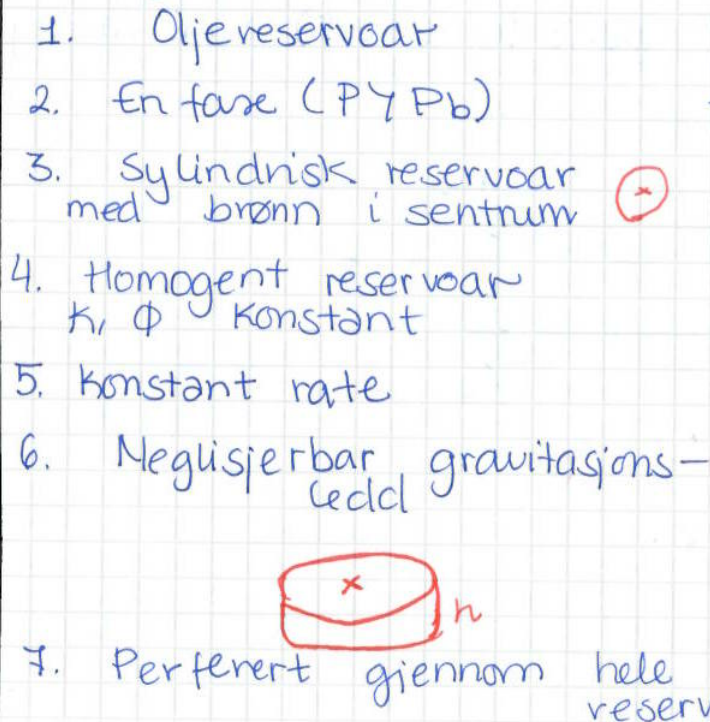 1. Oljereservoar
2. En fase (P > Pb)
3. Sylindrisk reservoar
med brønn i sentrum
4. Homogent reservoar
K, Φ konstant
5. Konstant rate
6. Neglisjerbar gravitasjons-
ledd
h
7. Perferert gjennom hele
reserv